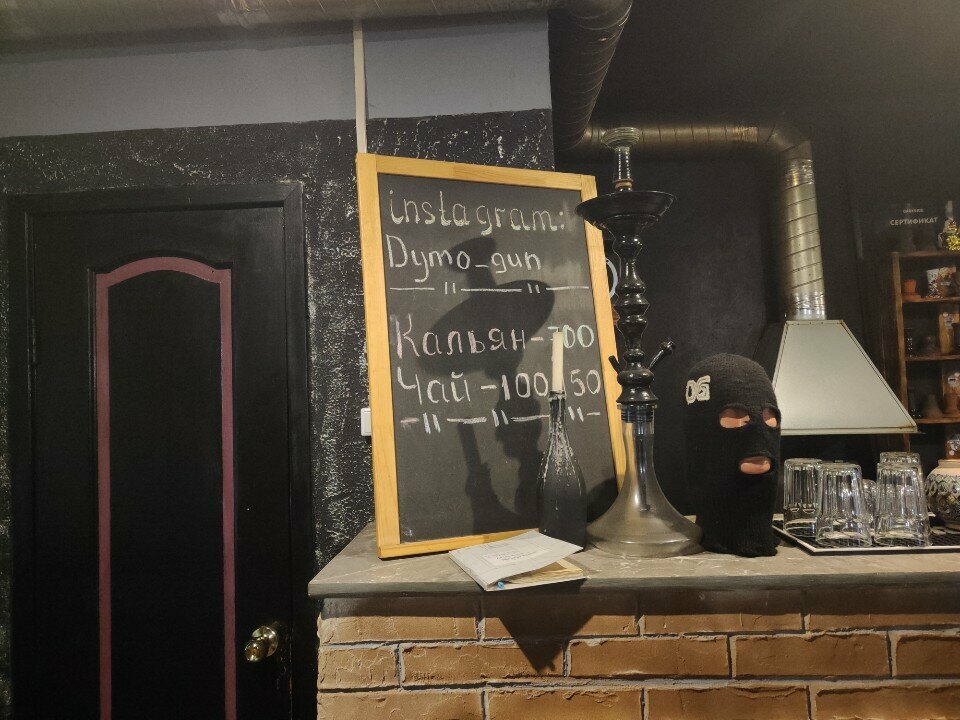 instagram:
Dymo_gun
— " — " —
Кальян-700
Чай-100 150
— " — " — " —
06
СЕРТИФИКАТ